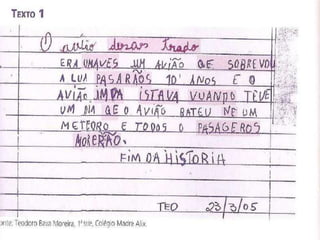 TEXTO 1
O avião desas trado
ERA UMAVES UM AVIÃO QE SOBREVOU
A LUA PASARÃOS 10 ANOS E O
AVIÃO IMDA ISTAVA VUANDO TEVE
UM DIA QE O AVIÃO BATEU NE UM
METEORO E TODOS O PASAGEROS
MORERÃO.
FIM DA HISTORIA
TEO 23/3/05
onte: Teodoro Bava Moreira, 1ª série, Colégio Madre Alix